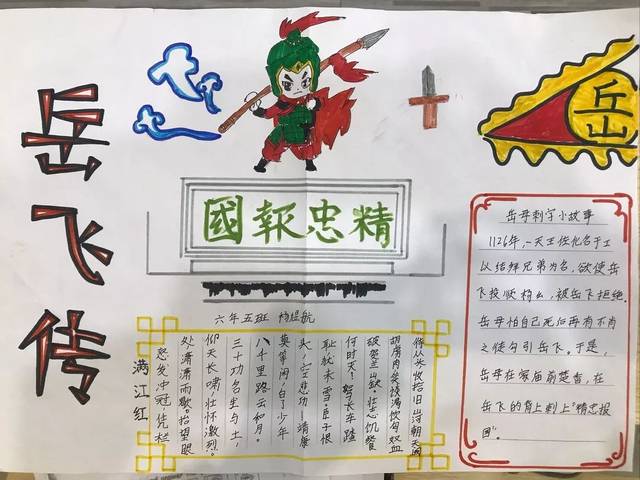 岳飞传
岳
精忠報國
六年五班
满江红
怒发冲冠,凭栏
处潇潇雨歇。抬望眼
仰天长啸,壮怀激烈。
三十功名尘与土,
八千里路云和月。
莫等闲,白了少年
头,空悲切 靖康
耻犹未雪。臣子恨
何时灭。驾长车踏
破贺兰山缺 壮志饥餐
胡虏肉笑谈渴饮匈奴血
待从头收拾旧山河朝天阙
岳母刺字小故事
1126年,一天王佐化名于工
以结拜兄弟为名,欲使岳
飞投顺杨么,被岳飞拒绝。
岳母怕自己死后再有不肖
之徒勾引岳飞。于是,
岳母在家庙前焚香,在
岳飞的背上刺上“精忠报
国”。